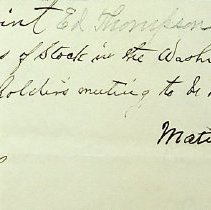 oint Ed Thompson
s of Stock in the Washi
holders meeting to be h
Mate